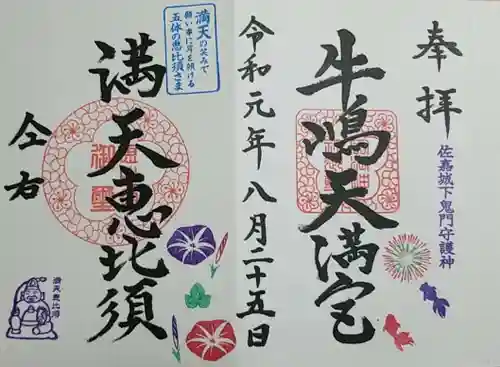 奉拝
佐嘉城下鬼門守護神
牛嶋天満宮
令和元年八月二十五日
満天の笑みで
願い事に耳を傾ける
五体の恵比須さま
満天恵比須
仝右
満天恵比須